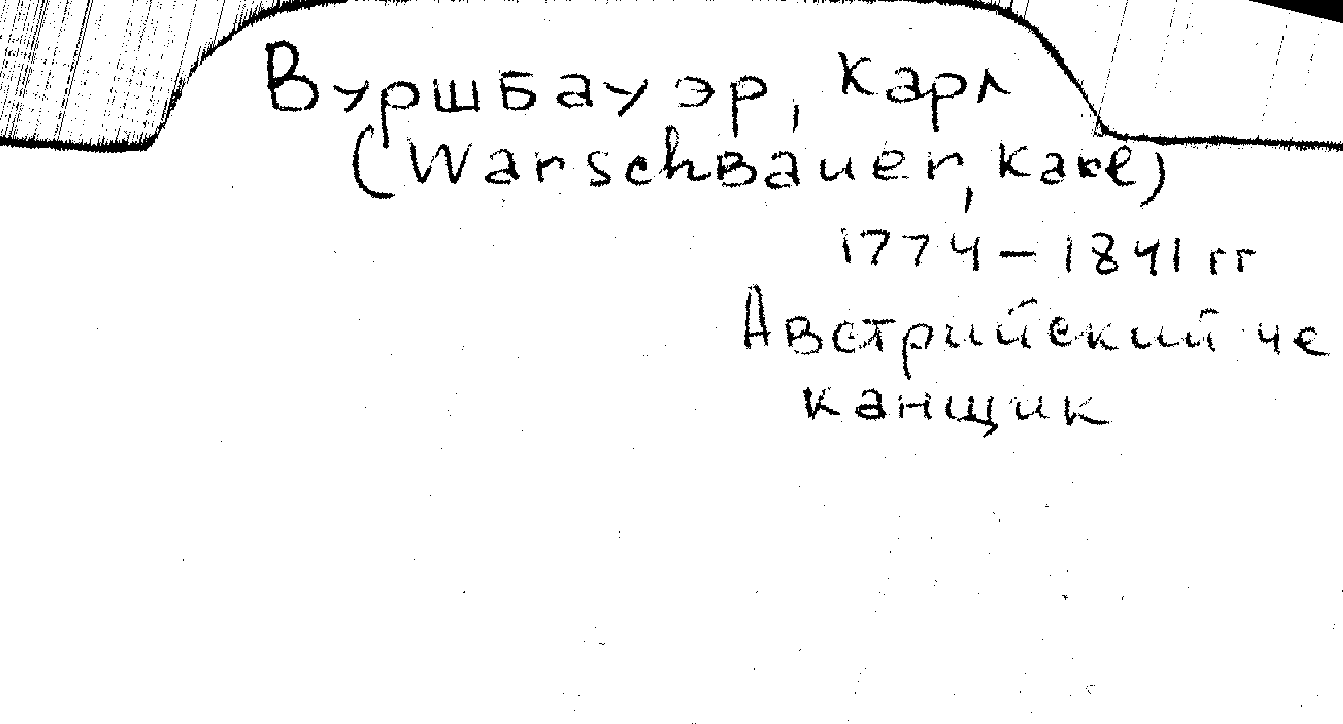 Вуршбауэр, Карл
(Warschbauer, Karl)
1774 – 1841 гг
Австрийский че
канщик